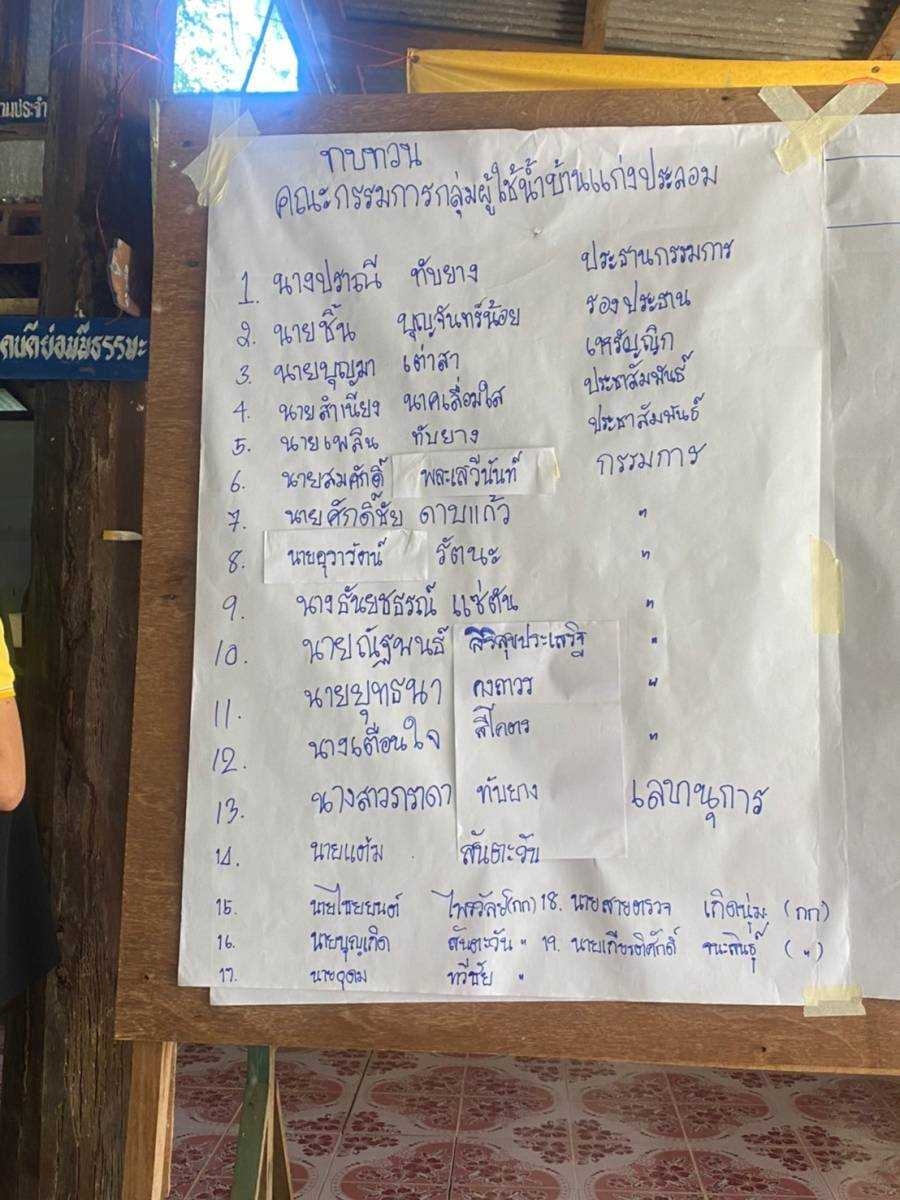 ามประจำ
คบคีย่อมมีธรรมะ
ทบทวน
คณะกรรมการกลุ่มผู้ใช้น้ำบ้านแก่งประลอม
1. นางปราณี ทับยาง ประธานกรรมการ
2. นายชิ้น บุญจันทร์น้อย รองประธาน
3. นายบุญมา เต่าสา เหรัญญิก
4. นายสำเนียง นาคเลื่อมใส ประชาสัมพันธ์
5. นายเพลิน ทับยาง ประชาสัมพันธ์
6. นายสมศักดิ์ พละเสวีนันท์ กรรมการ
7. นายศักดิ์ชัย ดาบแก้ว "
8. รัตนะ "
9. นางธันยชธรณ์ แซ่ตัน "
10. นายณัฐพนธ์ สิริสุขประเสริฐ "
11. นายยุทธนา คงถาวร "
12. นางเตือนใจ สีโคตร "
13. นางสาวภราดา ทับยาง เลขานุการ
14. นายแต้ม สันตะวัน
15. นายไชยยนต์ ไพรวัลย์ (กก) 18. นายสายตรวจ เกิดนุ่ม (กก)
16. นายบุญเกิด สันตะวัน " 19. นายเกียรติศักดิ์ ชนะสินธุ์ (")
17. นายอุดม ทวีชัย "